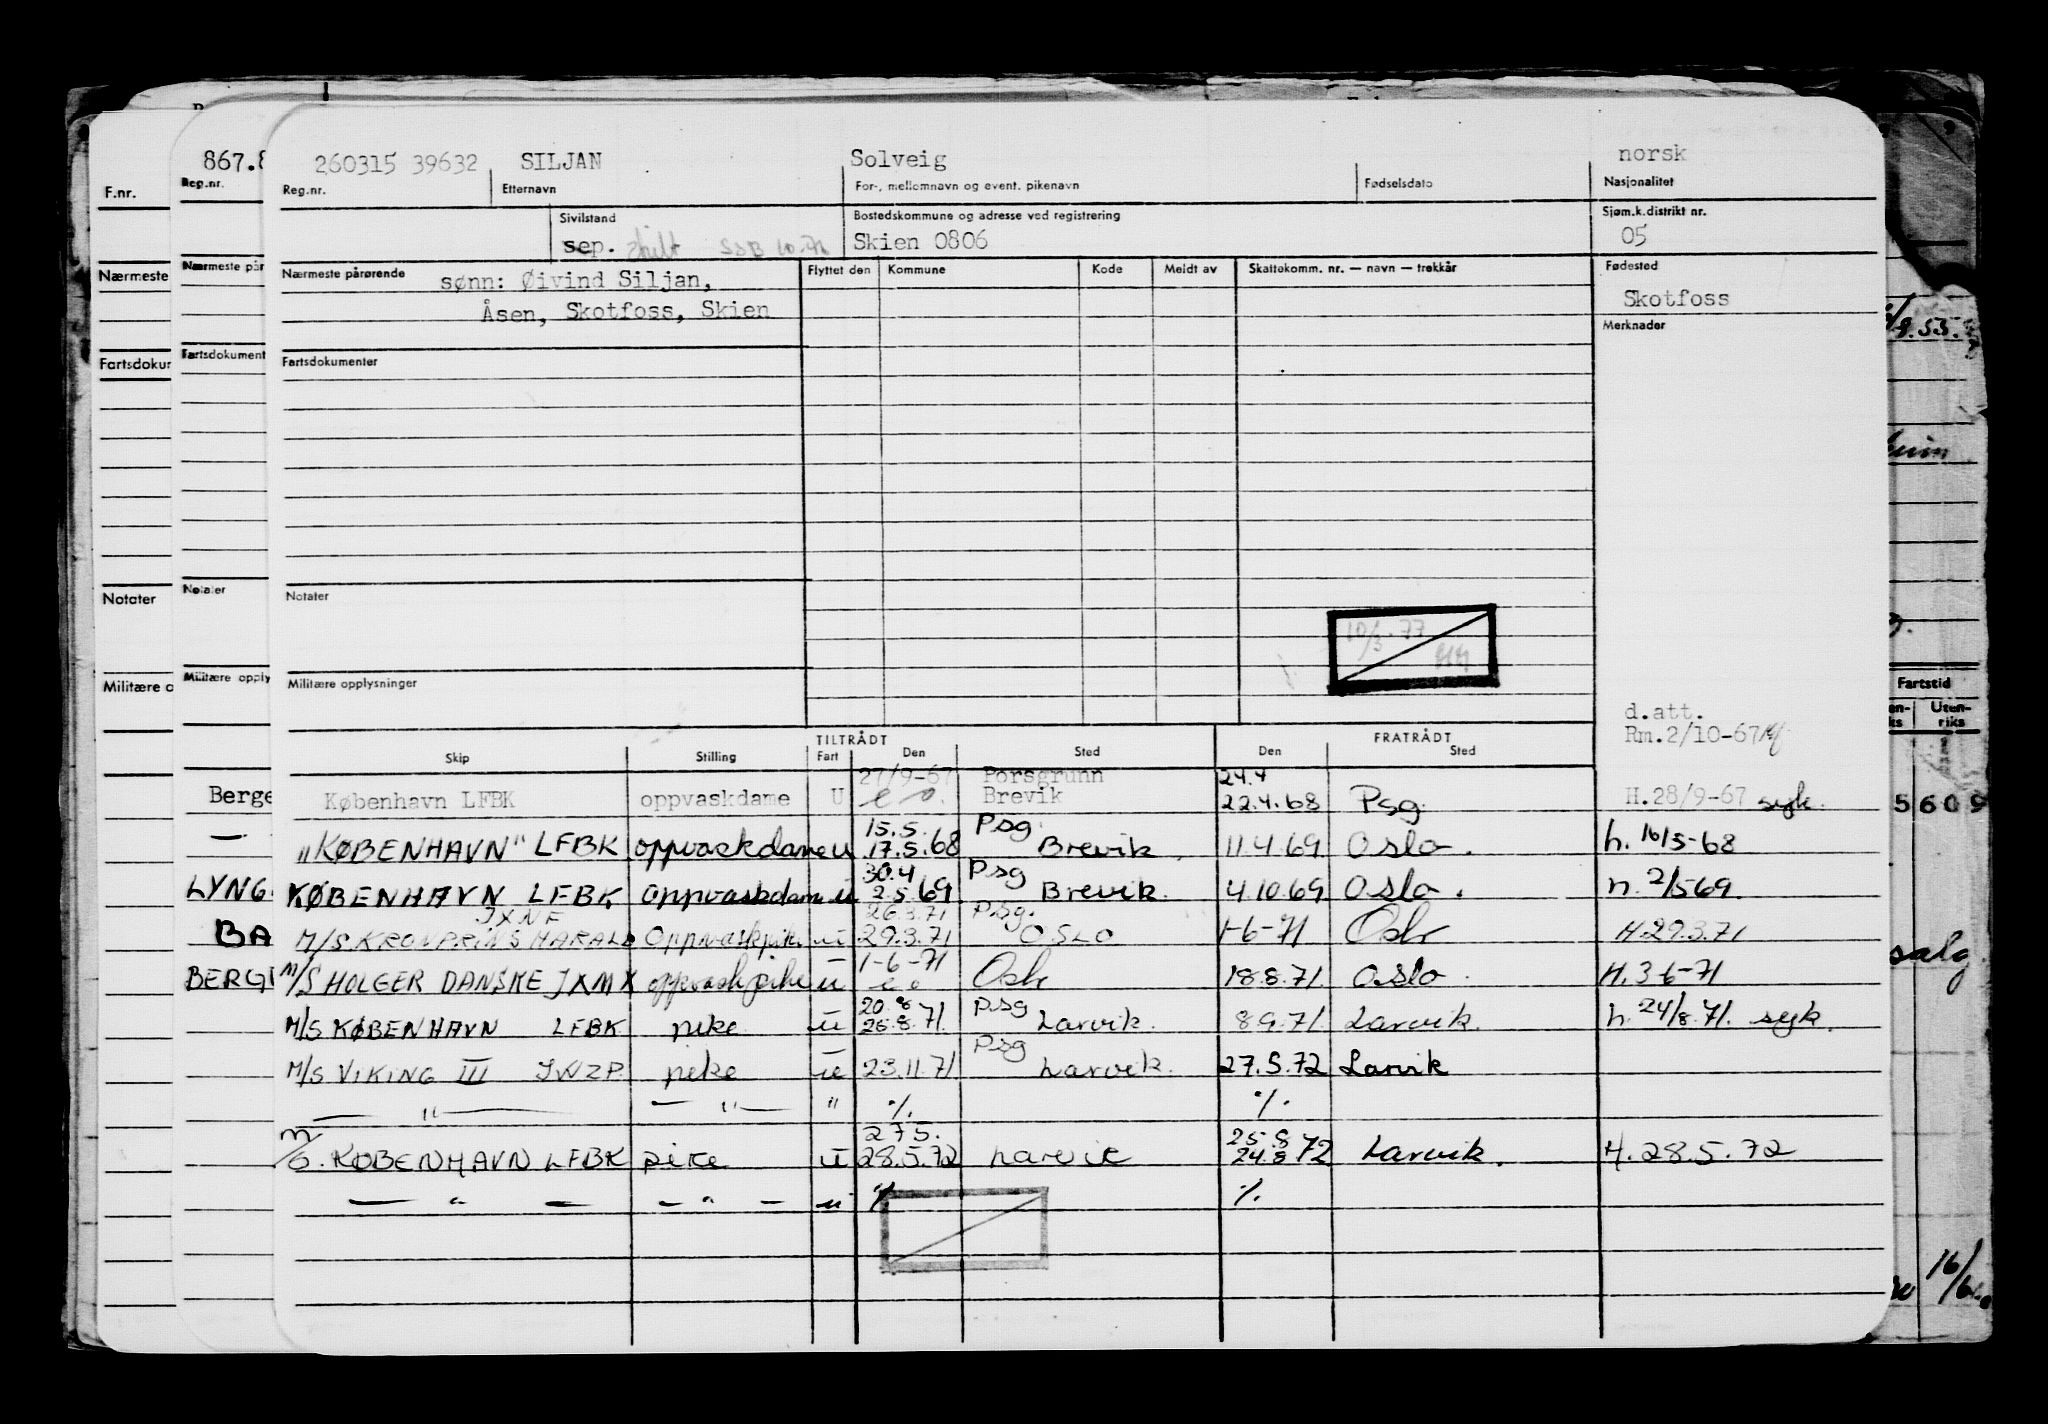 867.8
260315 39632 SILJAN Solveig norsk
F.nr. Reg.nr. Reg.nr. Etternavn For-, mellomnavn og event. pikenavn Fødselsdato Nasjonalitet
Sivilstand Bostedskommune og adresse ved registrering Sjøm.k.distrikt nr.
sep. skilt SSB 10.71 Skien 0806 05
Nærmeste Nærmeste pår Nærmeste pårørende Flyttet den Kommune Kode Meldt av Skattekomm. nr. — navn — trekkår Fødested
sønn: Øivind Siljan,
Åsen, Skotfoss, Skien
Skotfoss
Merknader
Fartsdokur Fartsdokument Fartsdokumenter
Notater Notater Notater
10/3-77
Militære o Militære opply Militære opplysninger
Fartstid
Uten-
riks
d.att.
Rm.2/10-67
TILTRÅDT FRATRÅDT
Skip Stilling Fart Den Sted Den Sted
27/9-67 Porsgrunn 24.4
Berge København LFBK oppvaskdame U Brevik 22.4.68 Psg. H.28/9-67 syk.
5609
15.5. Psg.
— „KØBENHAVN" LFBK oppvaskdame u 17.5.68 Brevik 11.4.69 Oslo. h. 16/5-68
30.4 Psg
LYNG KØBENHAVN LFBK oppvaskdam u 2.5.69 Brevik. 4.10.69 Oslo. h. 2/569.
JXNF 26.3.71 Psg.
BA M/S KRONPRINS HARALD Oppvaskpike u 29.3.71 OSLO 1-6-71 Oslo H.29.3.71
salg
1-6-71
BERG M/S HOLGER DANSKE JXMX oppvaskpike u Oslo 18.8.71. Oslo. H.3 6-71
20.8 Psg
M/S KØBENHAVN LFBK pike u 26.8.71. Larvik. 8 9.71. Larvik. h. 24/8.71. syk.
Psg
M/S VIKING III JWZP. pike u 23.11.71. Larvik. 27.5.72 Larvik
— " — — " — " %. %.
27 5. 25.8
M/S. KØBENHAVN LFBK pike u 28.5.72 Larvik 24.8 72 Larvik. H. 28.5.72
— " — — " — u % %.
16/